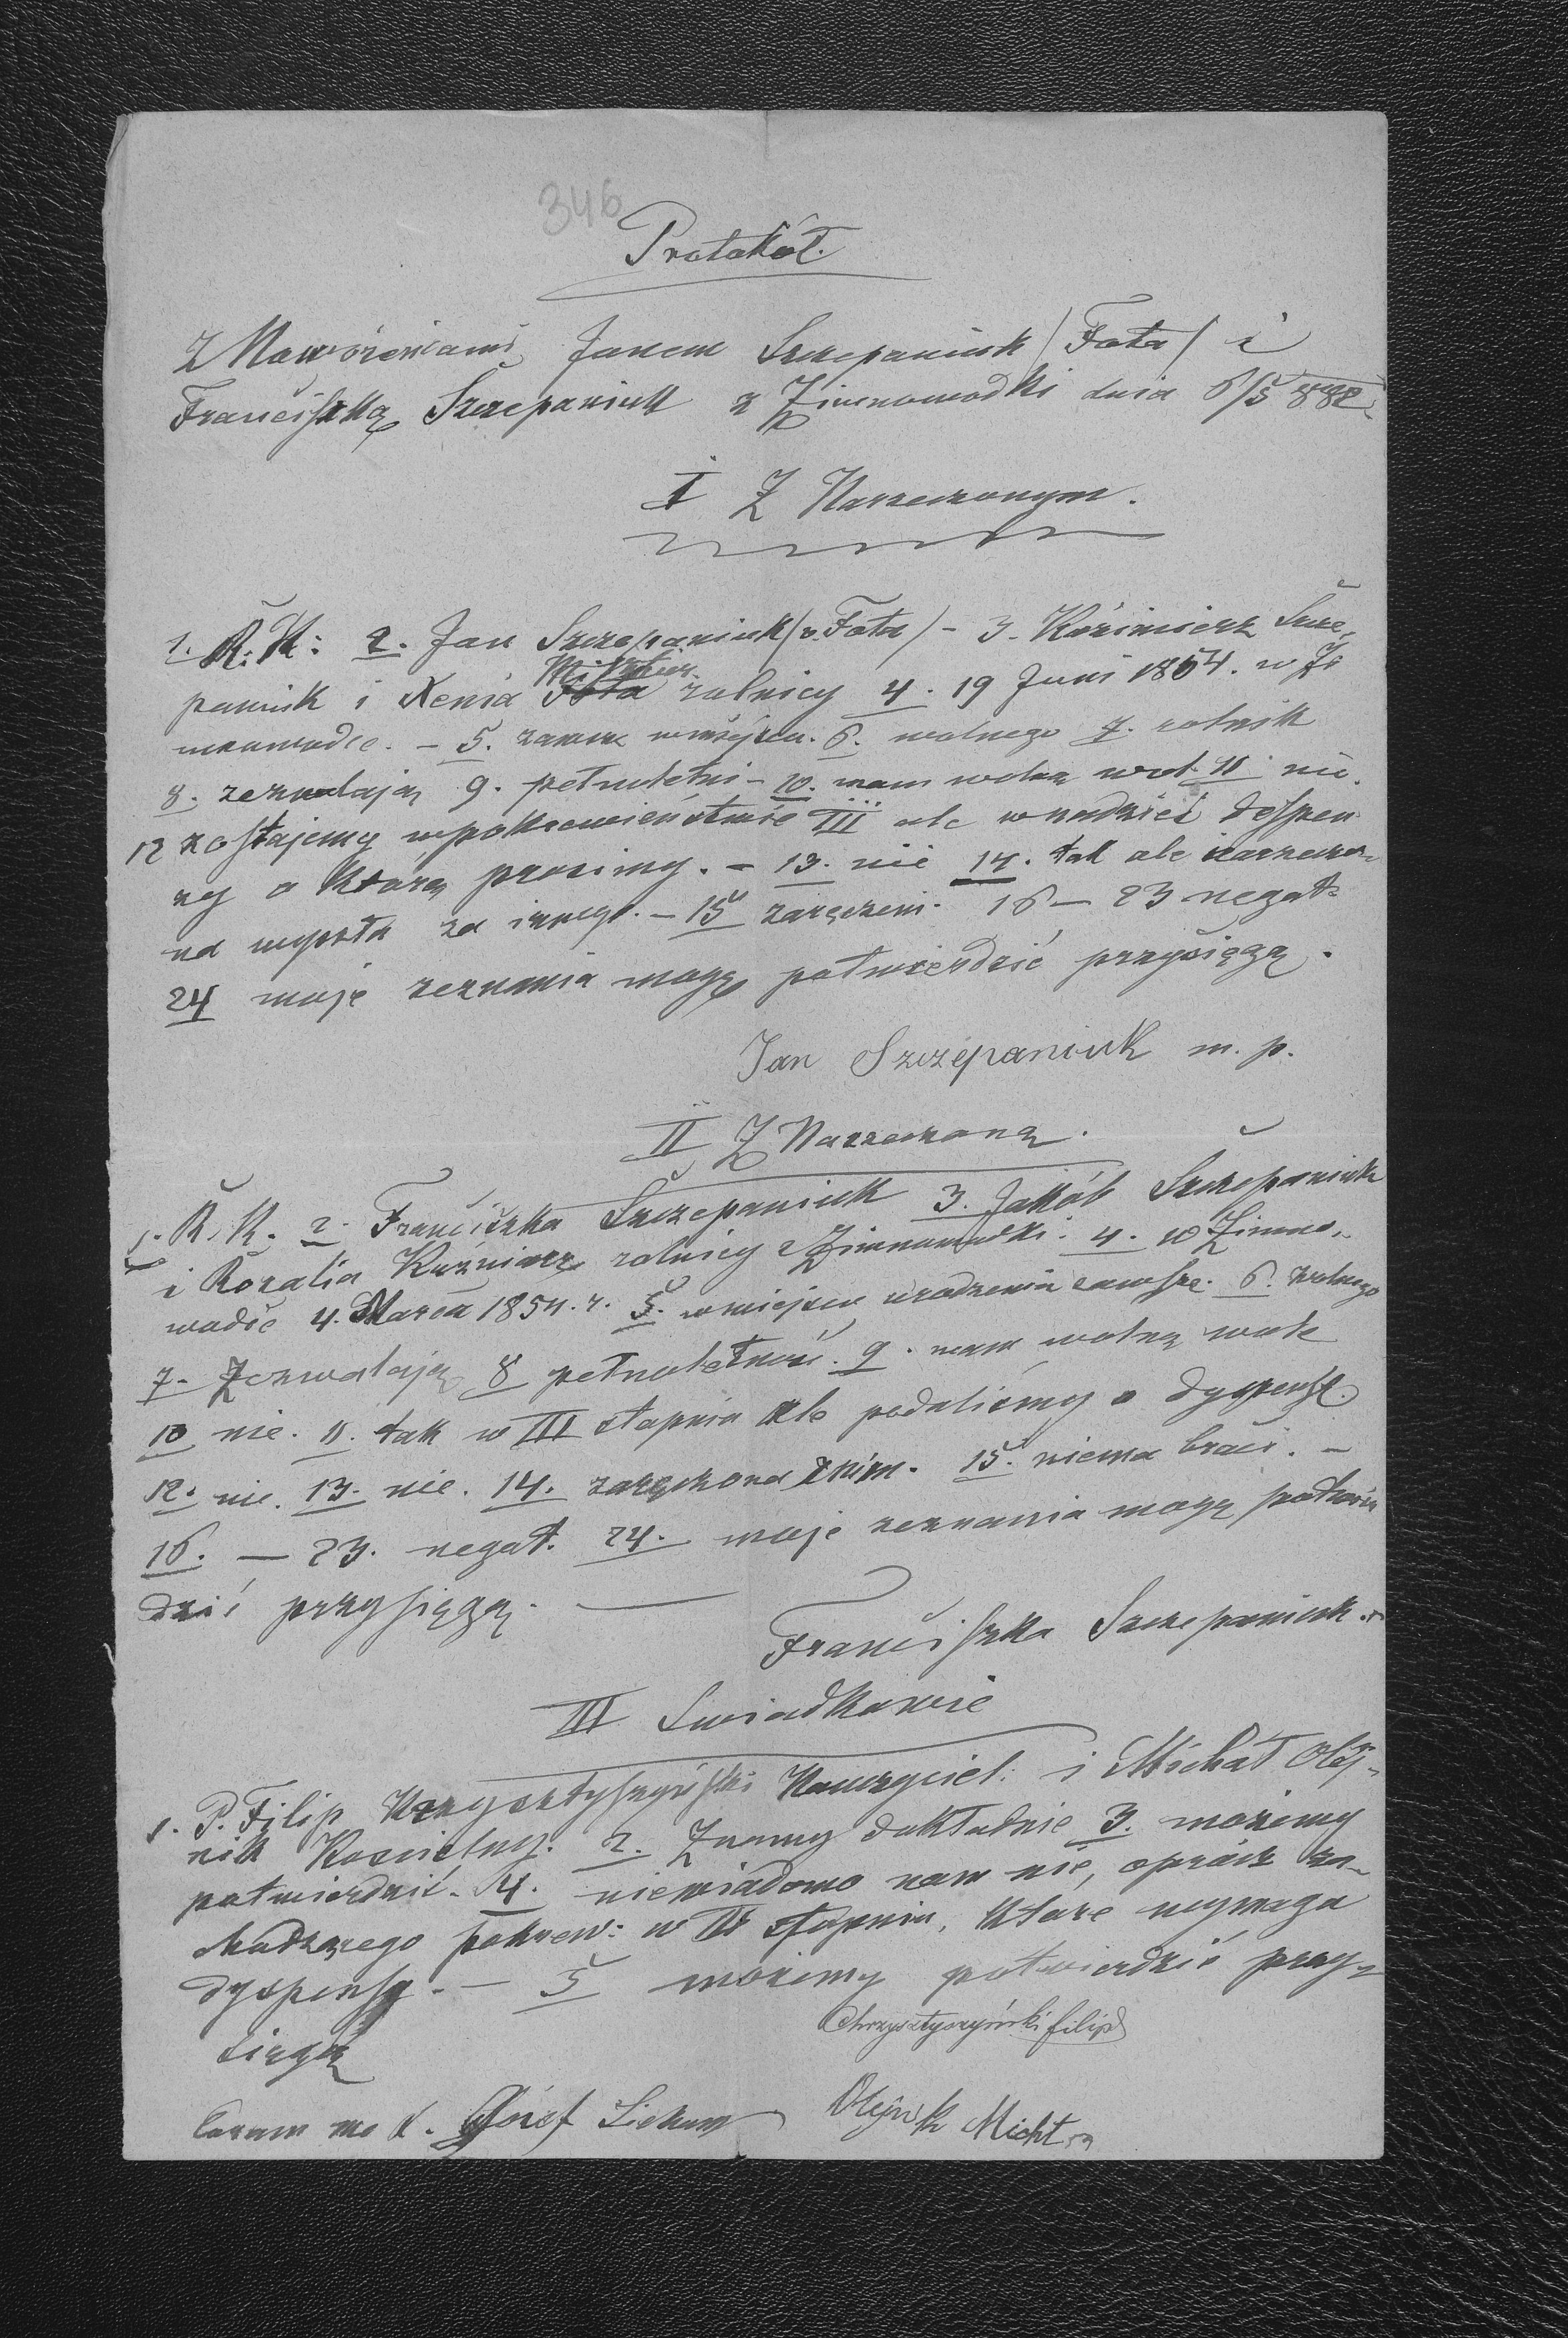 346
Protokół.
Z Nowożeńcami Janem Szczepaniuk /Fota/ i
Franciszką Szczepaniuk z Zimnowodki dnia 6/5 882
I Z Narzeczonym.
1. R. K: 2. Jan Szczepaniuk /v. Fota/ - 3. Kazimierz Szcze-
paniuk i Xenia Fota rolnicy 4. 19 Juni 1854. w Zi
mnowodce. - 5. zawsze w miejscu. 6. wolnego 7. rolnik
8. zezwalają 9. pełnoletni - 10. mam wolną wol. 11 nie.
12 zostajemy w pokrewieństwie III ale w nadziei dyspen
zy o którą prosimy. - 13. nie 14. tak ale narzeczo-
na wyszła za innego. - 15 zaręczeni. 16 - 23 negat.
24 moje zeznania mogę potwierdzić przysięgą.
Jan Szczepaniuk m. p.
II Z Narzeczoną.
1. R. K. 2. Franciszka Szczepaniuk 3. Jakób Szczepaniuk
i Rozalia Kuzniarz rolnicy z Zimnowodki. 4. w Zimno-
wodie 4. Marca 1854. r. 5. w miejscu urodzenia zawsze. 6. wolnego
7. Zezwalają 8 pełnoletność. 9. mam wolną wole
10 nie. 11. tak w III stopniu ale podaliśmy o dyspensę
12. nie. 13. nie. 14. zaręczona z nim. 15. niema braci. -
16. - 23. negat. 24. moje zeznania mogę potwier
dzić przysięgą.
Franciszka Szczepaniuk
III Swiadkowie
1. P. Filip Krzysztyszyński Nauczyciel: i Michał Olej-
nik Kościelny. 2. Znamy dokładnie 3. możemy
potwierdzić. 4. niewiadomo nam nic, oprócz za-
chodzącego pokrew: w III stopniu, które wymaga
dyspensy. - 5 możemy potwierdzić przy-
sięgą
Chrzysztyszyński filip
Coram me X. Józef
Olejnik Michł